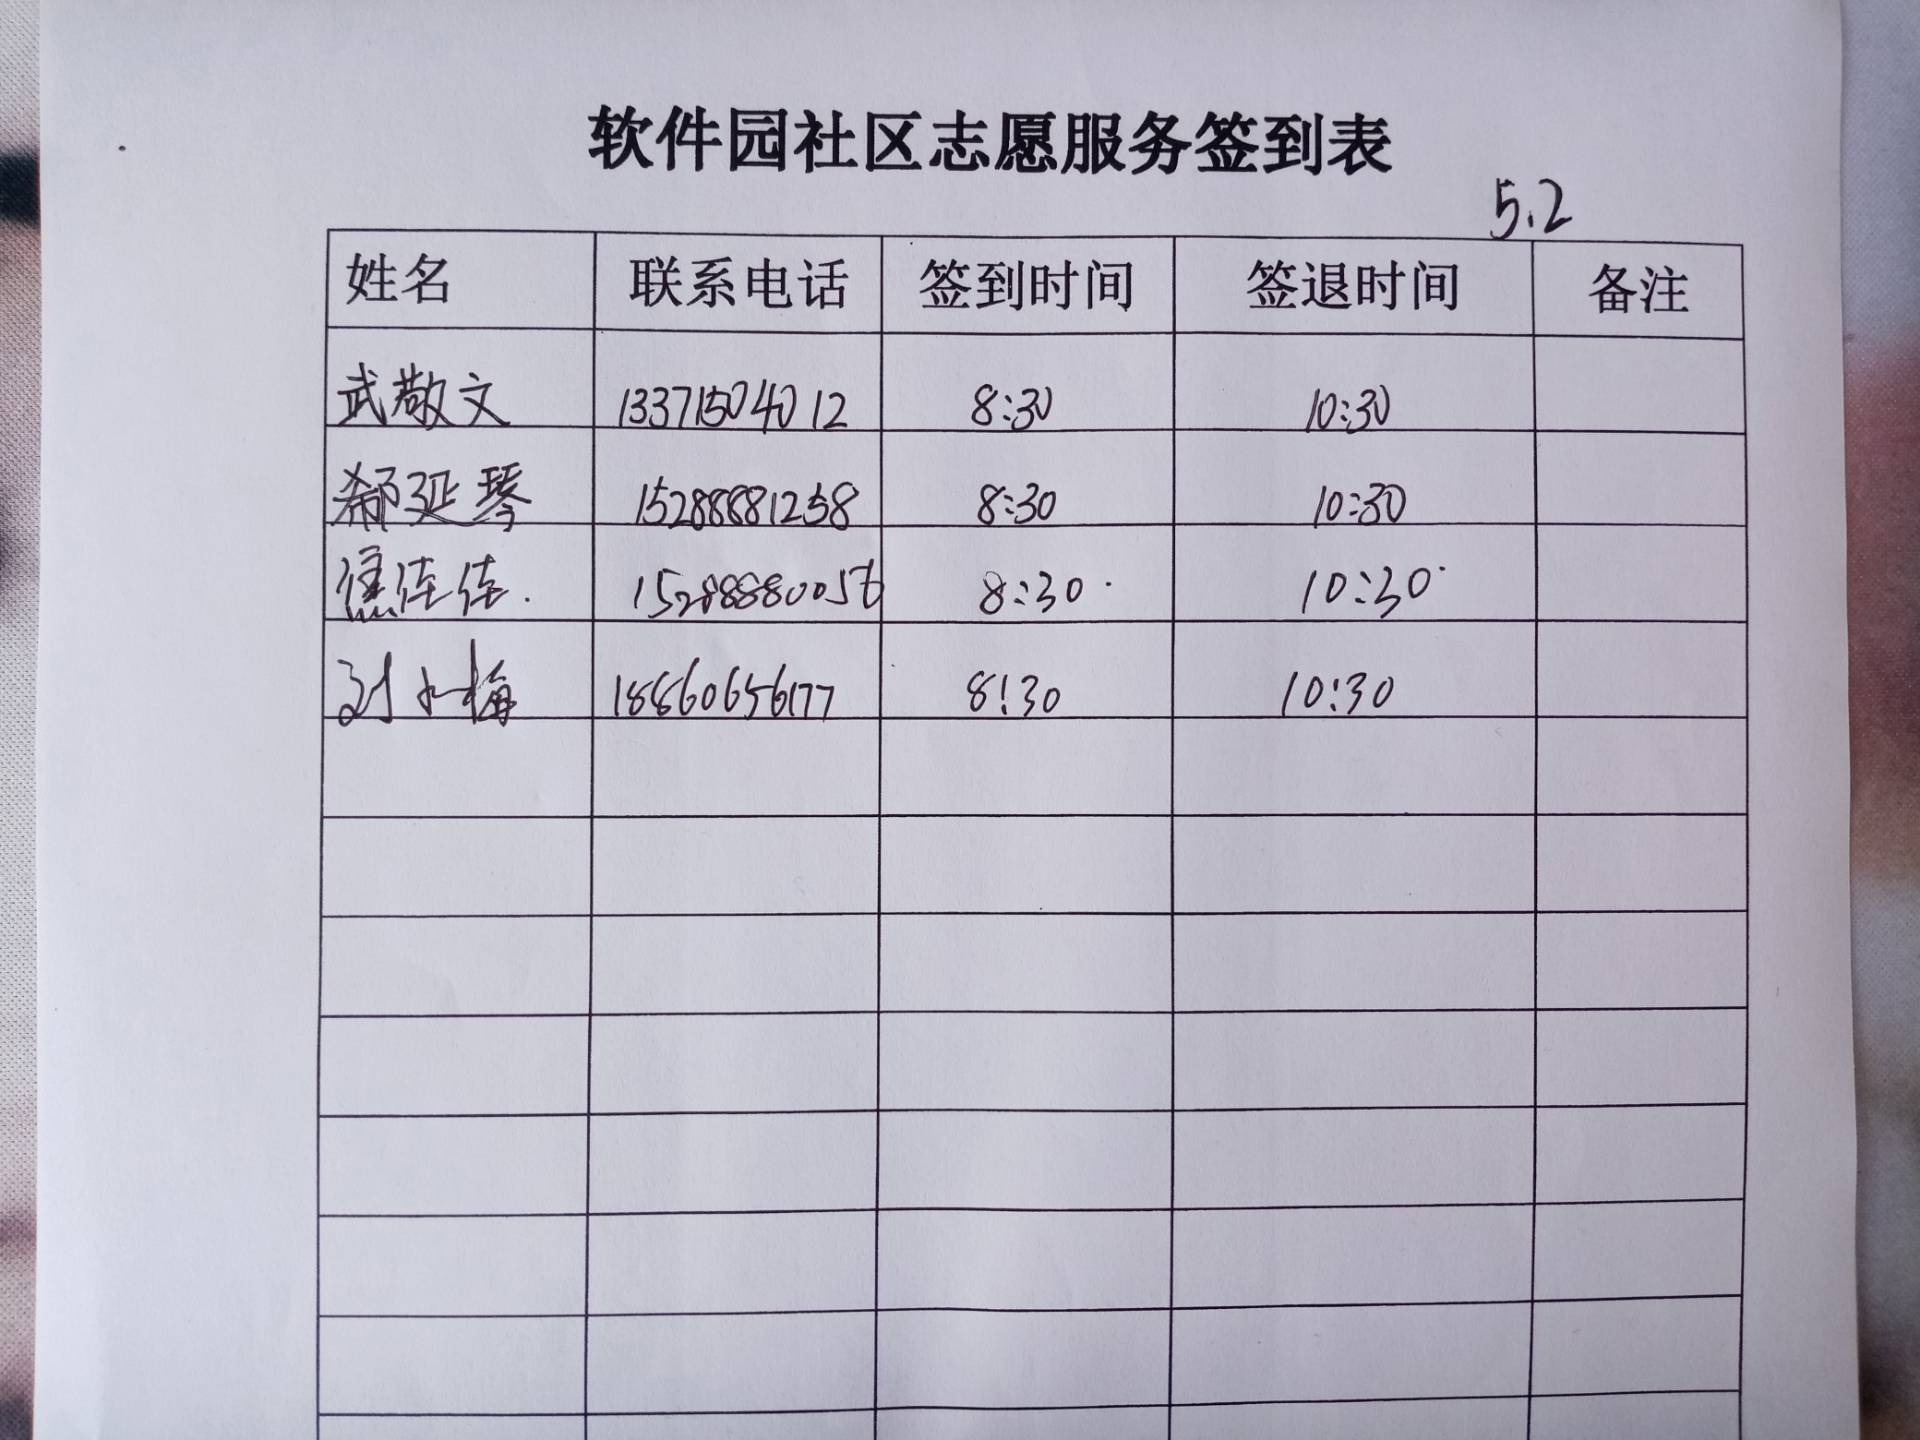 软件园社区志愿服务签到表
5.2
姓名 联系电话 签到时间 签退时间 备注
武敬文 13371504012 8:30 10:30
郗延琴 15288881258 8:30 10:30
焦佳佳. 15288880056 8:30. 10:30.
刘小梅 18860656177 8:30 10:30